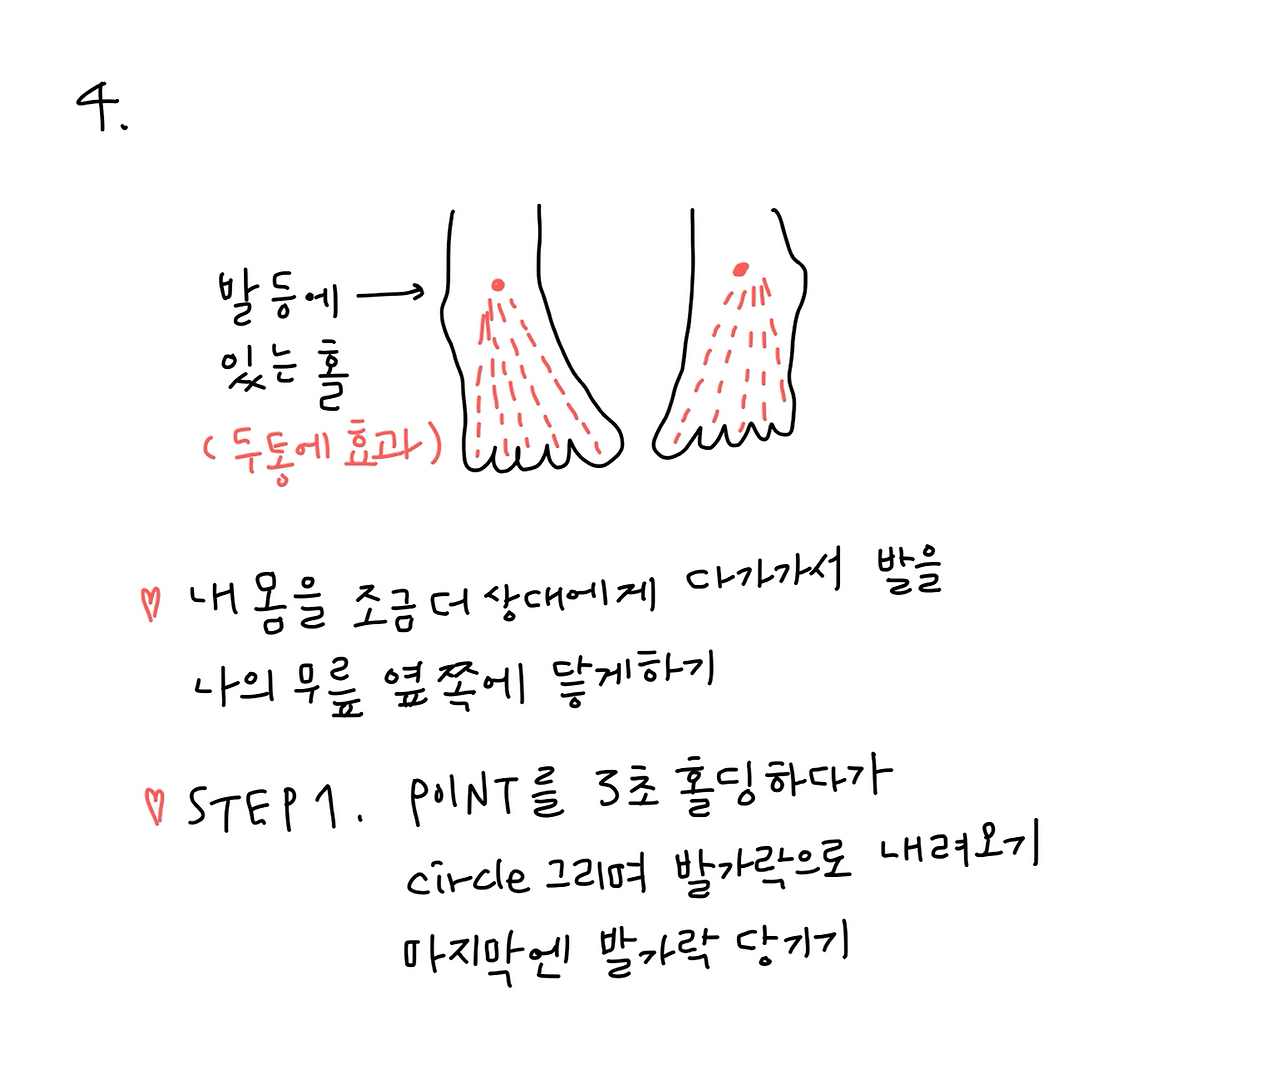 4.
발 등에 →
있는 홀
(두통에 효과)
♡ 내 몸을 조금 더 상대에게 다가가서 발을
나의 무릎 옆쪽에 닿게하기
♡ STEP 1. POINT를 3초 홀딩하다가
circle 그리며 발가락으로 내려오기
마지막엔 발가락 당기기